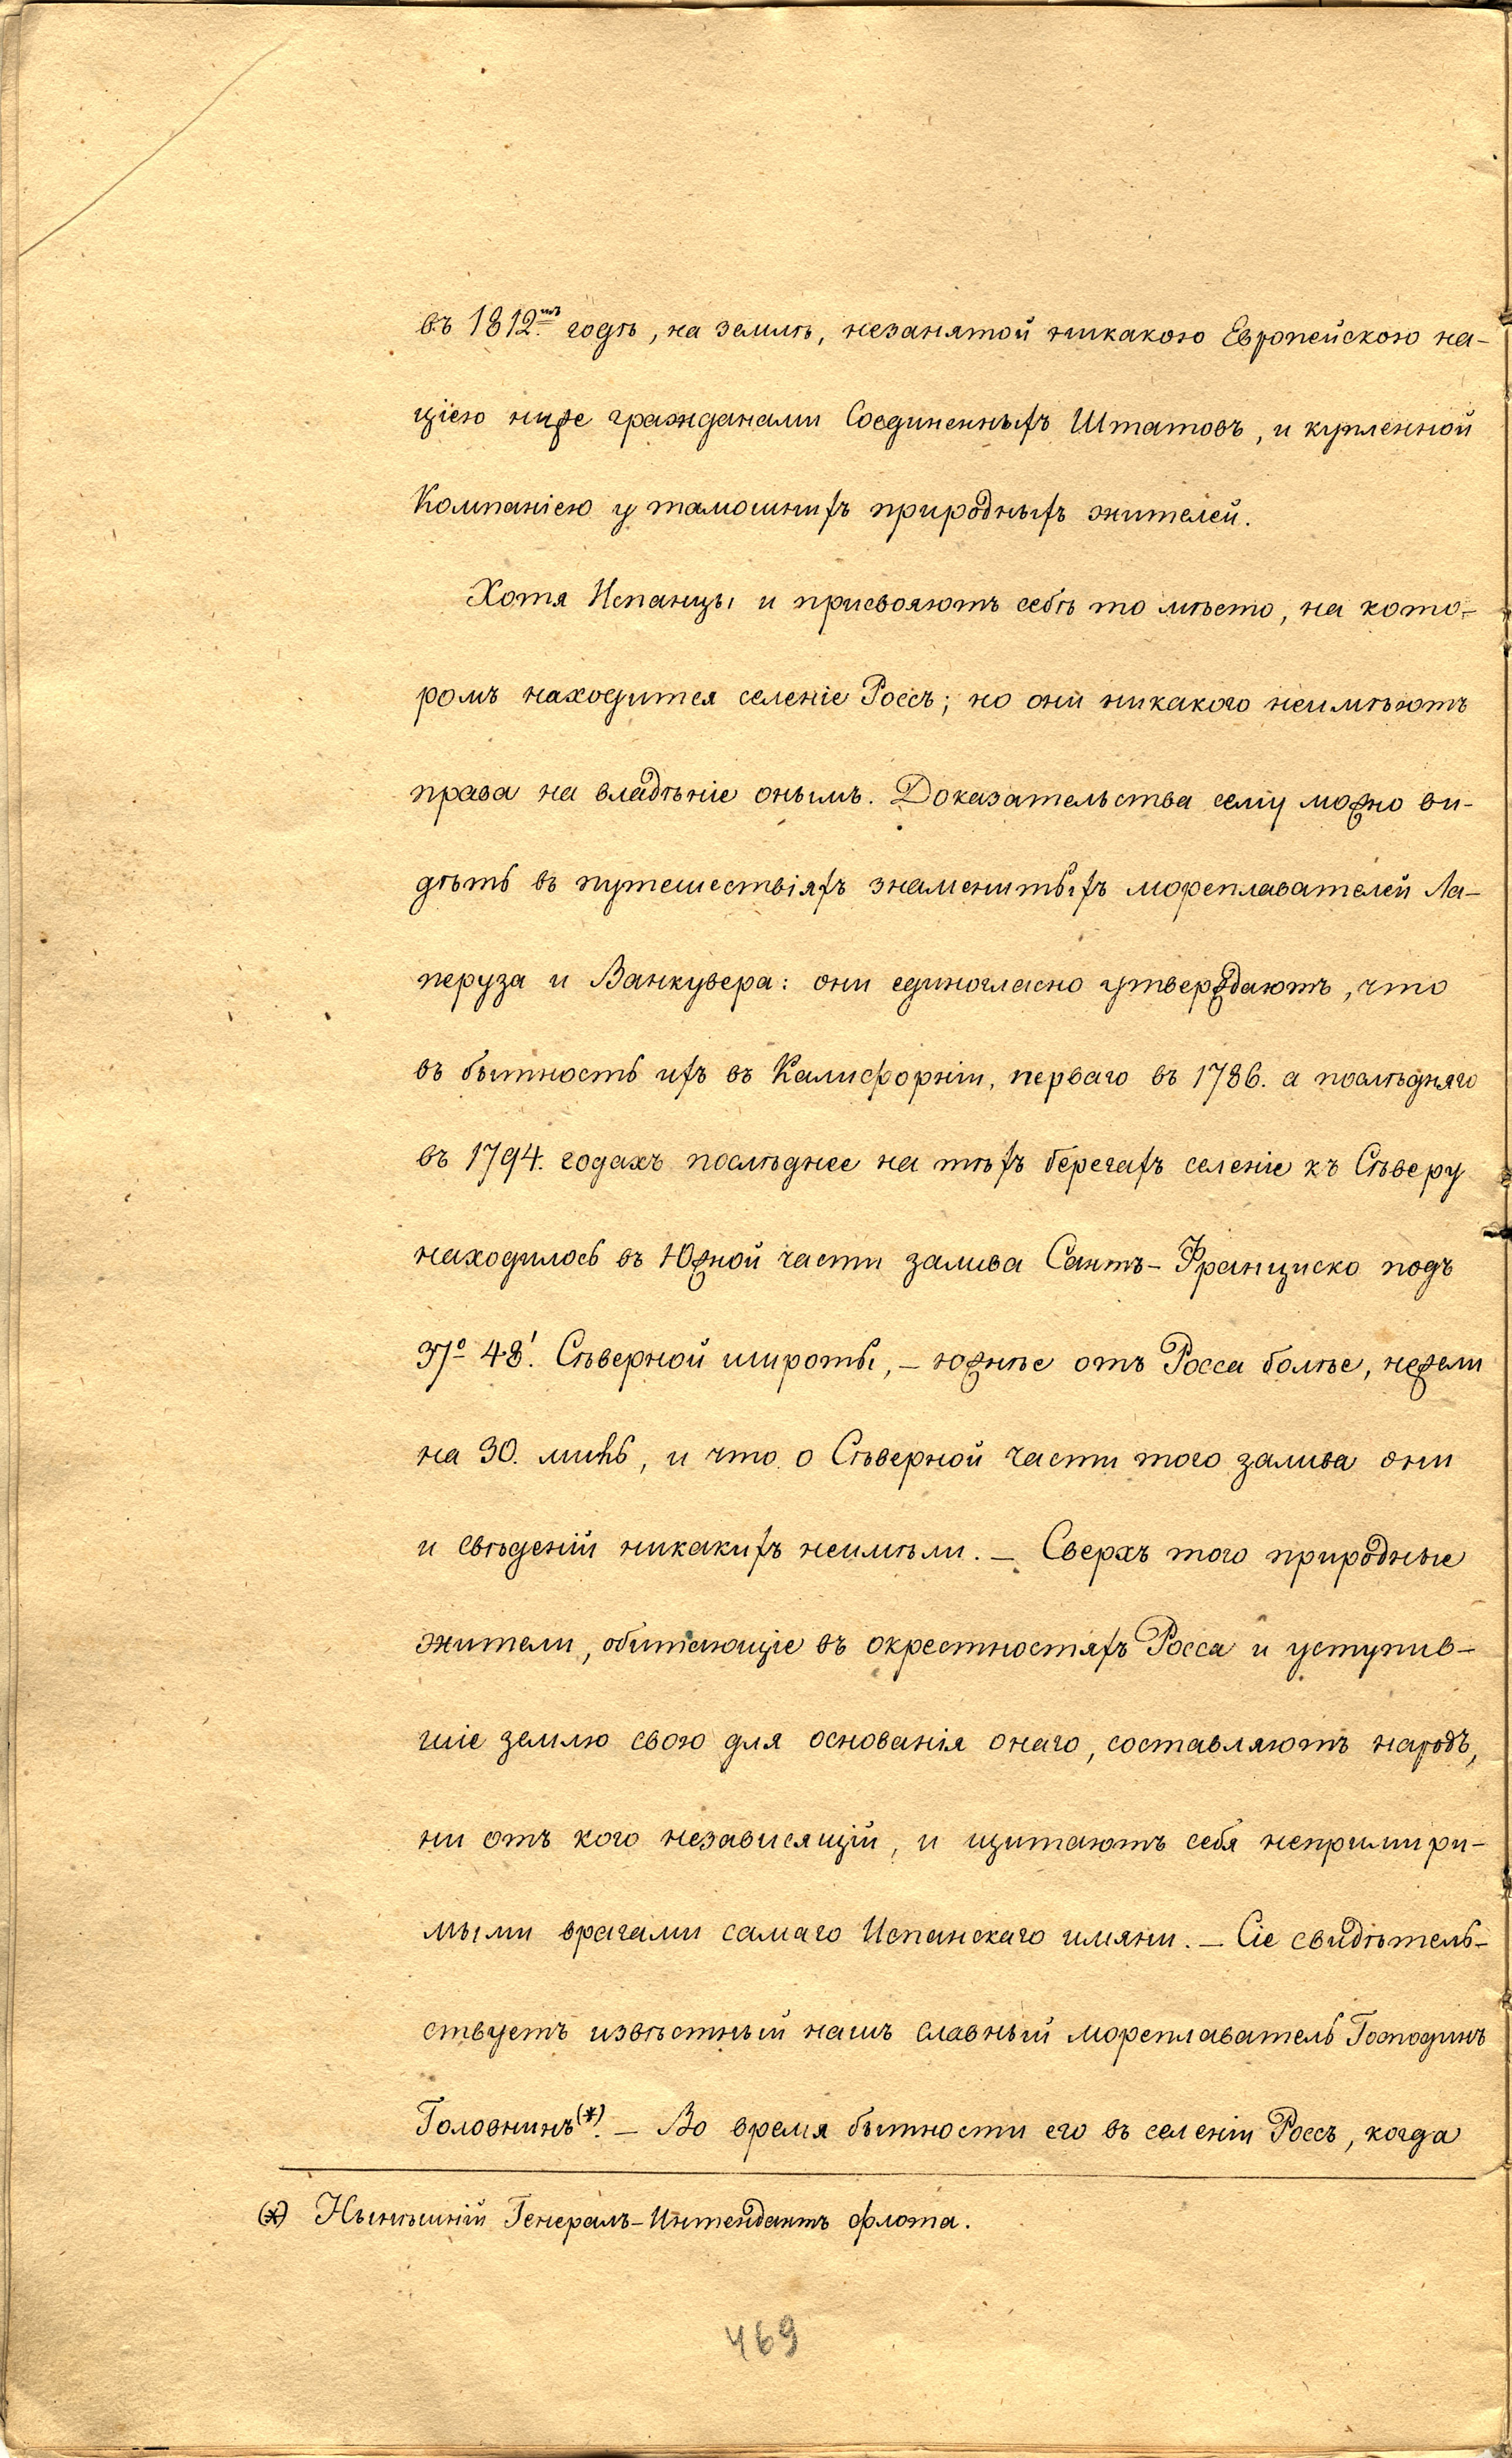 въ 1812.мъ годѣ, на землѣ, незанятой никакою Европейскою на-
ціею ниже гражданами Соединенныхъ Штатовъ, и купленной
Компаніею у тамошнихъ природныхъ жителей.
Хотя Испанцы и присвояютъ себѣ то мѣсто, на кото-
ромъ находится селеніе Россъ; но они никакого неимѣютъ
права на владѣніе онымъ. Доказательства сему можно ви-
дѣть въ путешествіяхъ знаменитыхъ мореплавателей Ла-
перуза и Ванкувера: они единогласно утверждаютъ, что
въ бытность ихъ въ Калифорніи, перваго въ 1786. а послѣдняго
въ 1794. годахъ послѣднее на тѣхъ берегахъ селеніе къ Сѣверу
находилось въ Южной части залива Сантъ-Франциско подъ
37° 48'. Сѣверной широты, — южнѣе отъ Росса болѣе, нежели
на 30. миль, и что о Сѣверной части того залива они
и свѣденій никакихъ неимѣли. — Сверхъ того природные
жители, обитающіе въ окрестностяхъ Росса и уступив-
шіе землю свою для основанія онаго, составляютъ народъ,
ни отъ кого независящій, и щитаютъ себя непримири-
мыми врагами самаго Испанскаго имяни. — Сіе свидѣтель-
ствуетъ извѣстный нашъ славный мореплаватель Господинъ
Головнинъ(*). — Во время бытности его въ селеніи Россъ, когда
(*) Нынѣшній Генералъ-Интендантъ флота.
469